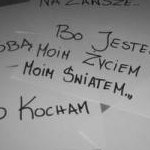 NA ZAWSZE..
BO JESTEŚ
OBĄ MOIM ŻYCIEM
- MOIM ŚWIATEM...
O KOCHAM